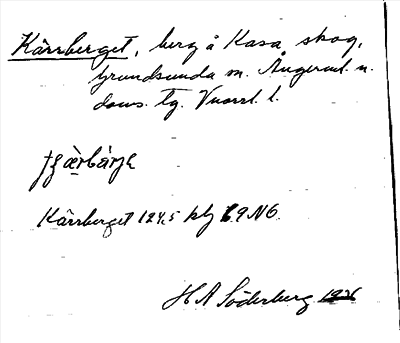 Kärrberget, berg å Kasa skog,
Grundsunda sn. Ångerml. n.
doms. tg. Vnorrl. l.
Kärrberget 124,5 blz 69 N6.
H A Söderberg 1926